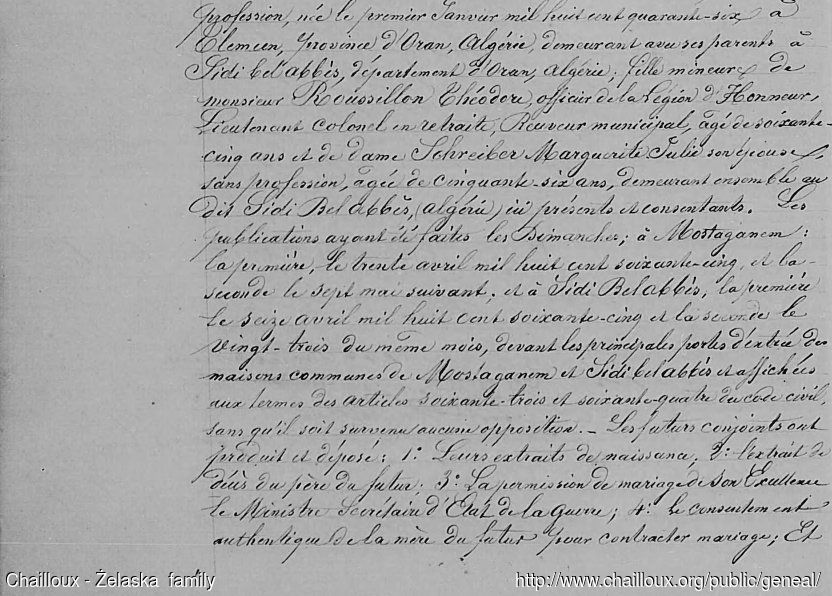 profession, née le premier Janvier mil huit cent quarante-six à
Tlemcen, Province d'Oran, Algérie, demeurant avec ses parents à
Sidi bel abbès, département d'Oran, algérie; fille mineure de
monsieur Roussillon Théodore, officier de la Légion d'Honneur,
Lieutenant colonel en retraite, Receveur municipal, âgé de soixante-
cinq ans et de dame Schreiber Marguerite Julie son épouse,
sans profession, âgée de cinquante-six ans, demeurant ensemble au
dit Sidi Bel abbès, (algérie) ici présents et consentants. Les
publications ayant été faites les Dimanches; à Mostaganem:
la première, le trente avril mil huit cent soixante-cinq, et la
seconde le sept mai suivant. et à Sidi Bel abbès, la première
le seize avril mil huit cent soixante-cinq et la seconde le
vingt-trois du même mois, devant les principales portes d'entrée des
maisons communes de Mostaganem et Sidi bel abbès et affichées
aux termes des articles soixante-trois et soixante-quatre du code civil,
sans qu'il soit survenu aucune opposition. _ Les futurs conjoints ont
produit et déposé: 1° Leurs extraits de naissance; 2° l'extrait de
décès du père du futur; 3° La permission de mariage de Son Excellence
le Ministre Secrétaire d'Etat de la Guerre; 4° le consentement
authentique de la mère du futur pour contracter mariage; Et
Chailloux - Żelaska family
http://www.chailloux.org/public/geneal/